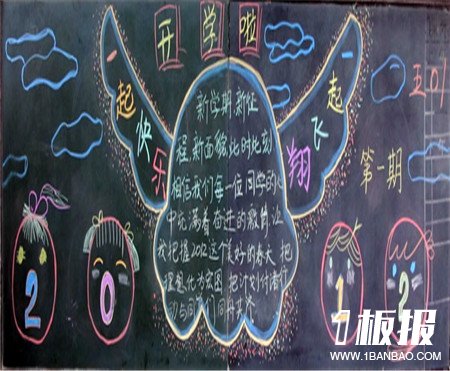 开学啦
一起快乐
一起飞翔
新学期新征
程,新面貌,此时此刻
相信我们每一位同学的心
中充满着奋进的激情,让
我把握2012这个美好的春天,把
理想化为宏图,把计划付诸行
第一期
2
0
1
2
1板报
WWW.1BANBAO.COM